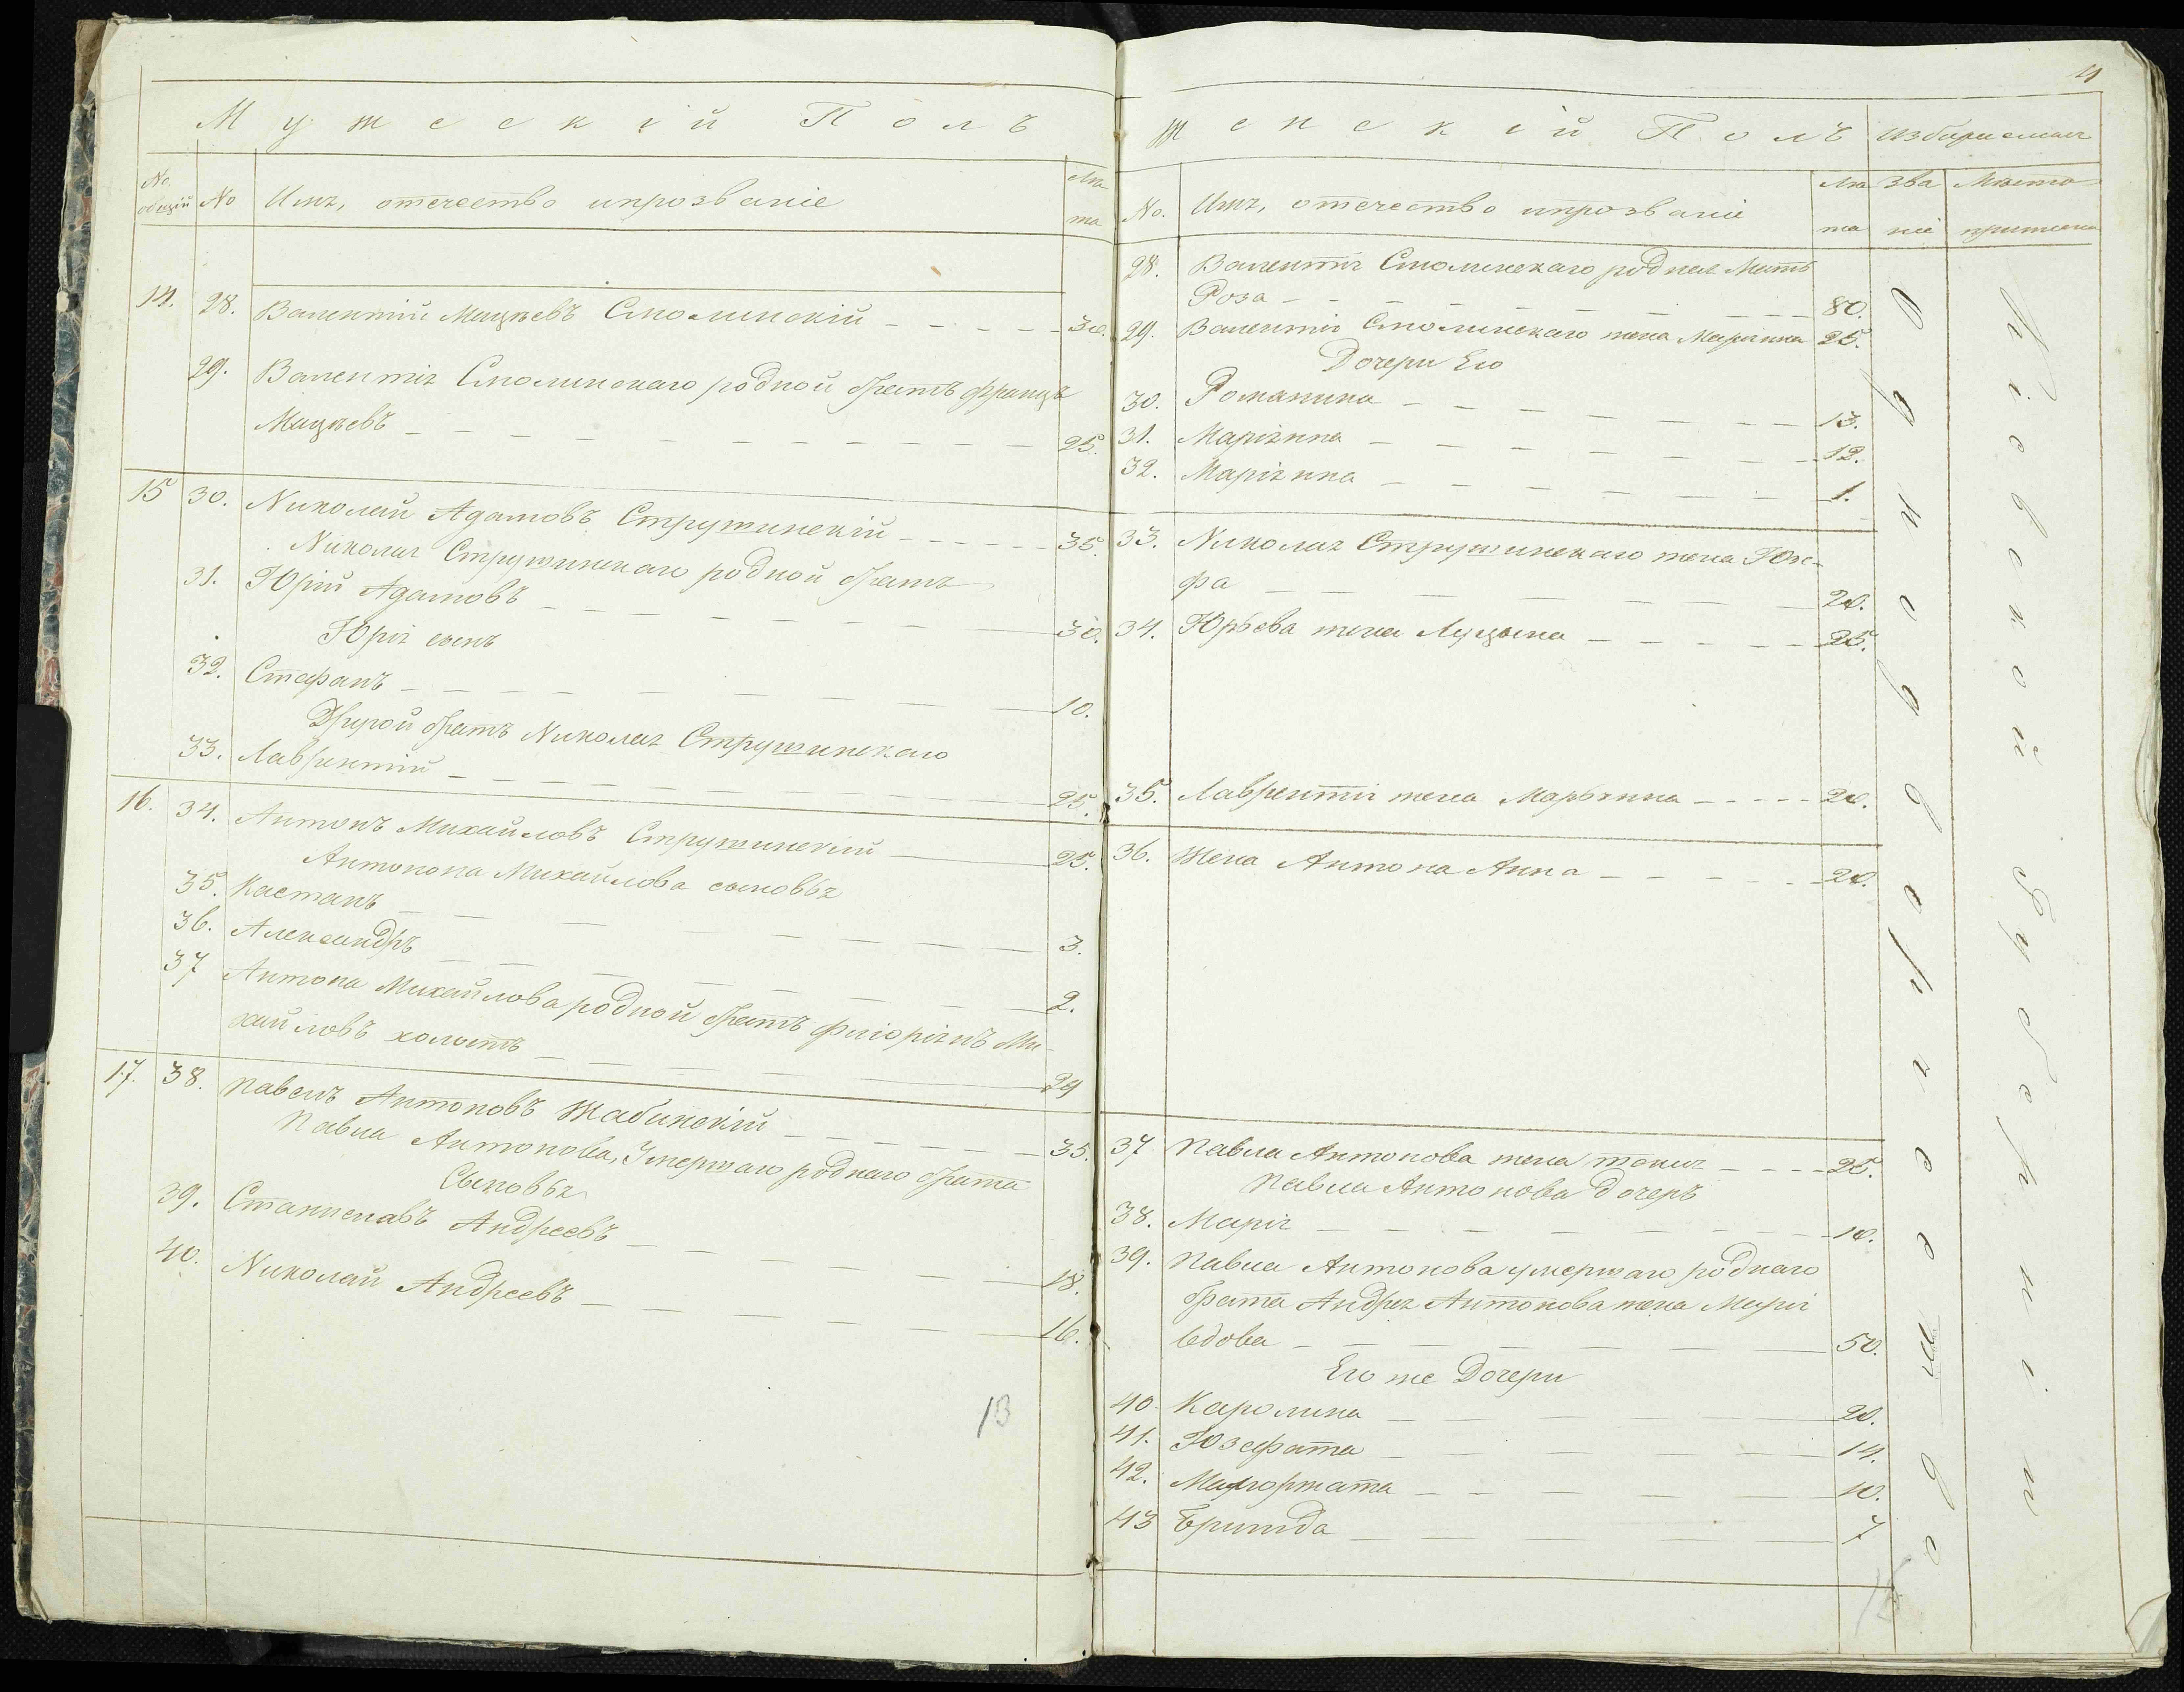 Мужескій Полъ
No общій
No
Имя, отечество ипрозваніе
Лѣта
14. 28. Валентій Мацѣевъ Смолинскій 30.
29. Валентія Смолинскаго родной братъ Францъ
Мацѣевъ 25.
15 30. Николай Адамовъ Стружинскій 35.
Николая Стружинскаго родной братъ
31. Юрій Адамовъ 30.
Юрія сынъ
32. Стефанъ 10.
Другой братъ Николая Стружинскаго
33. Лаврентій 25.
16. 34. Антонъ Михайловъ Стружинскій 25.
Антонона Михайлова сыновья
35. Каетанъ 3.
36. Александръ 2.
37 Антона Михайлова родной братъ Флоріянъ Ми-
хайловъ холостъ 29
17. 38. Павелъ Антоновъ Жабинскій 35.
Павла Антонова, Умершаго роднаго брата
Сыновья
39. Станиславъ Андреевъ 18.
40. Николай Андреевъ 16.
13
4
Женскій Полъ
Избираемыя
No.
Имя, отечество ипрозваніе
Лѣта
Званіе
Место
28. Валентія Смолинскаго родная Мать
Роза 80.
29. Валентія Смолинскаго жена Маріянна 25.
Дочери Его
30. Романина 13.
31. Маріянна 12.
32. Маріянна 1.
33. Николая Стружинскаго жена Юзе-
фа 20.
34. Юрьева жена Луцына 25.
35. Лаврентія жена Марьянна 20.
36. Жена Антона Анна 20.
37 Павла Антонова жена текля 25.
Павла Антонова дочерь
38. Марія 10.
39. Павла Антонова умершаго роднаго
брата Андрея Антонова жена Марія
вдова 50.
Его же Дочери
40. Каролина 20.
41. Юзефата 14.
42. Малгоржата 10.
43 Бригида 7
Однодворческого
Кіевской Губерніи